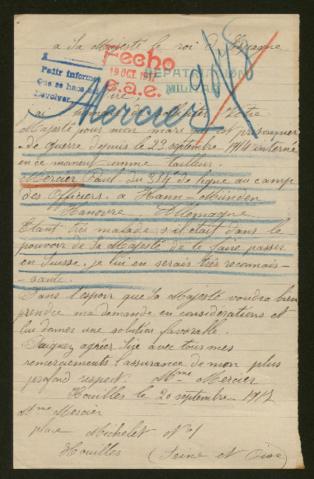 à Sa Majesté le roi d'Espagne
Fecho
19 OCT. 1917
e.a.e.
Pedir informe
que se hace
devolver
REPATRIATION
MILIT
Mercier
votre
Majesté pour mon mari prisonnier
de guerre depuis le 22 septembre 1914 interné
en ce moment comme tailleur.
Mercier Paul du de ligne au camp
des Officiers. à Hann-Münden
Hanovre Allemagne
Etant très malade s'il était dans le
pouvoir de Sa Majesté de le faire passer
en Suisse. je lui en serais très reconnais-
sante.
Dans l'espoir que Sa Majesté voudra bien
prendre ma demande en considérations et
lui donner une solution favorable.
Daignez agréer Sire avec tous mes
remerciements l'assurance de mon plus
profond respect. Mme Mercier
Houilles le 20 septembre 1917
Mme Mercier
place Michelet N° 1
Houilles (Seine et Oise)